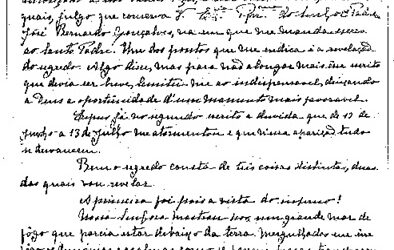 quais, julgo que conserva
José Bernardo Gonçalves, na em que me manda escrever
ao Santo Padre. Um dos pontos que me indica é a revelação
do segredo. Algo disse, mas para não alongar mais esse escrito
que devia ser breve, limitei-me ao indispensavel, deixando
a Deus a oportunidade d'um momento mais favoravel.
Expus já no segundo escrito a duvida que de 13 de
Junho a 13 de Julho me atormentou e que n'essa aparição tudo
se desvaneceu.
Bem o segredo consta de três coisas distintas, duas
das quais vou revelar.
A primeira foi pois a vista do inferno!
Nossa Senhora mostrou-nos um grande mar de
fôgo que parcia estar debaixo da terra. Mergulhados em êsse